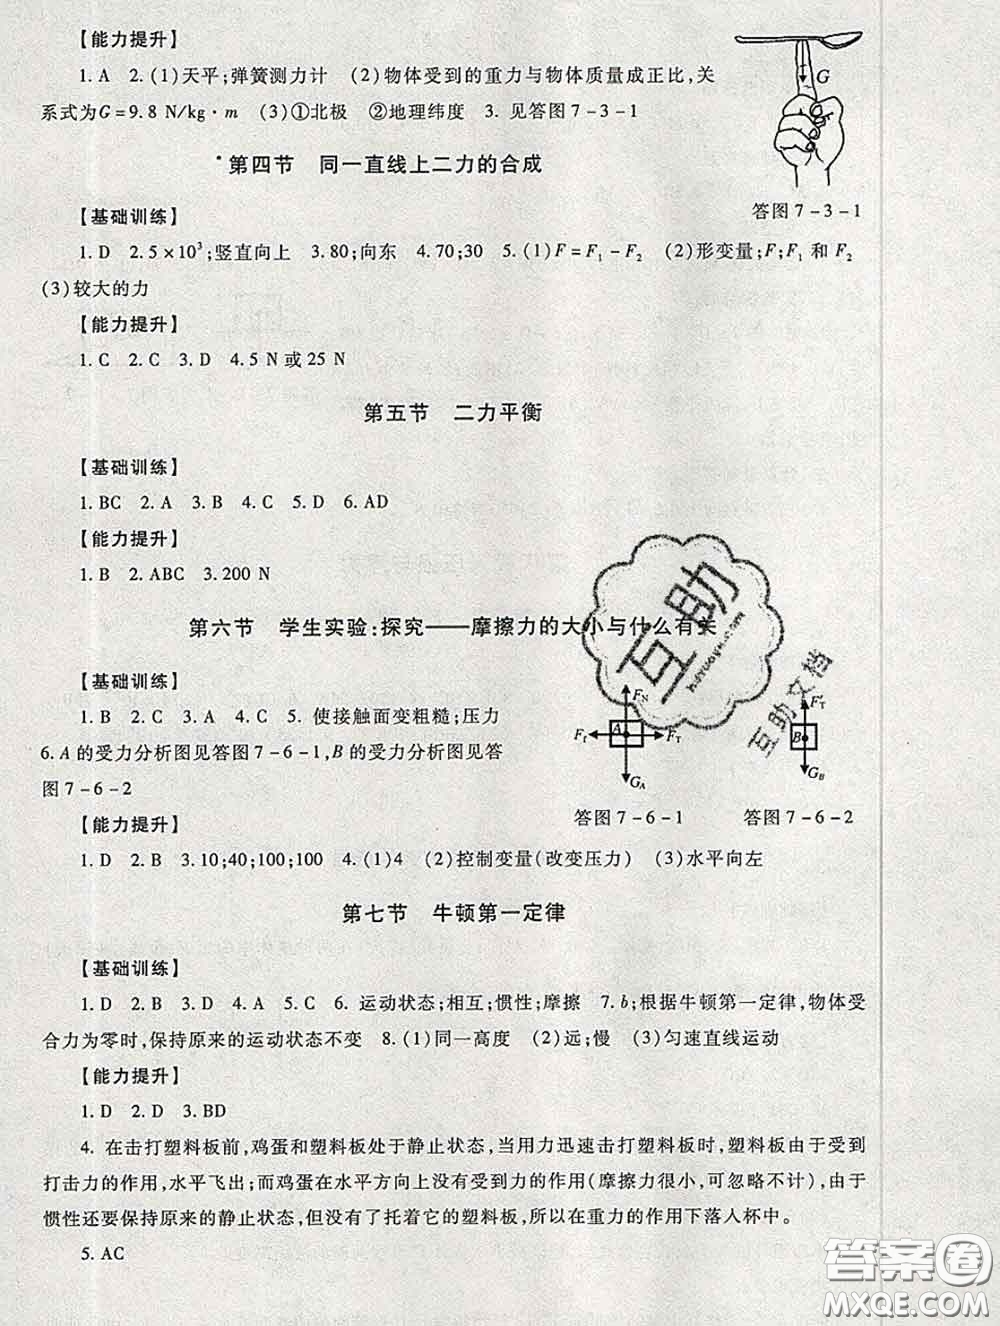 【能力提升】
1. A 2. (1)天平;弹簧测力计 (2)物体受到的重力与物体质量成正比,关
系式为G=9.8 N/kg·m (3)①北极 ②地理纬度 3. 见答图7-3-1
G
答图7-3-1
*第四节 同一直线上二力的合成
【基础训练】
1. D 2. 5×10³;竖直向上 3. 80;向东 4. 70;30 5. (1)F=F₁-F₂ (2)形变量;F;F₁和F₂
(3)较大的力
【能力提升】
1. C 2. C 3. D 4. 5 N或25 N
第五节 二力平衡
【基础训练】
1. BC 2. A 3. B 4. C 5. D 6. AD
【能力提升】
1. B 2. ABC 3. 200 N
第六节 学生实验:探究——摩擦力的大小与什么有关
【基础训练】
1. B 2. C 3. A 4. C 5. 使接触面变粗糙;压力
6. A的受力分析图见答图7-6-1,B的受力分析图见答
图7-6-2
F_N
F_f A F_T
G_A
答图7-6-1
F'_T
B
G_B
答图7-6-2
互助
互助文档
【能力提升】
1. D 2. B 3. 10;40;100;100 4. (1)4 (2)控制变量(改变压力) (3)水平向左
第七节 牛顿第一定律
【基础训练】
1. D 2. B 3. D 4. A 5. C 6. 运动状态;相互;惯性;摩擦 7. b;根据牛顿第一定律,物体受
合力为零时,保持原来的运动状态不变 8. (1)同一高度 (2)远;慢 (3)匀速直线运动
【能力提升】
1. D 2. D 3. BD
4. 在击打塑料板前,鸡蛋和塑料板处于静止状态,当用力迅速击打塑料板时,塑料板由于受到
打击力的作用,水平飞出;而鸡蛋在水平方向上没有受到力的作用(摩擦力很小,可忽略不计),由于
惯性还要保持原来的静止状态,但没有了托着它的塑料板,所以在重力的作用下落人杯中。
5. AC
答案圈
MXQE.COM